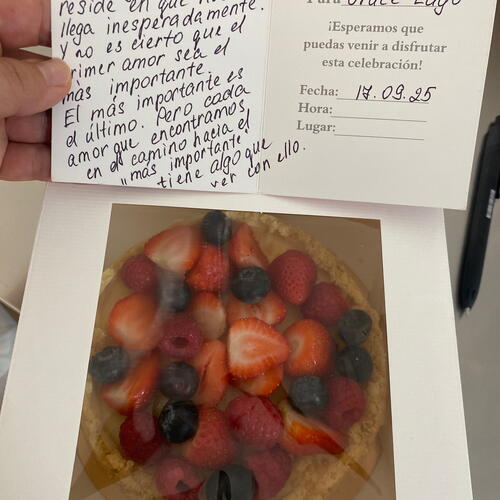 reside en que
llega inesperadamente.
Y no es cierto que el
primer amor sea el
más importante.
El más importante es
el último. Pero cada
amor que encontramos
en el camino hacia el
"más importante"
tiene algo que
ver con ello.
Para Grace Lugo
¡Esperamos que
puedas venir a disfrutar
esta celebración!
Fecha: 17.09.25
Hora:
Lugar: